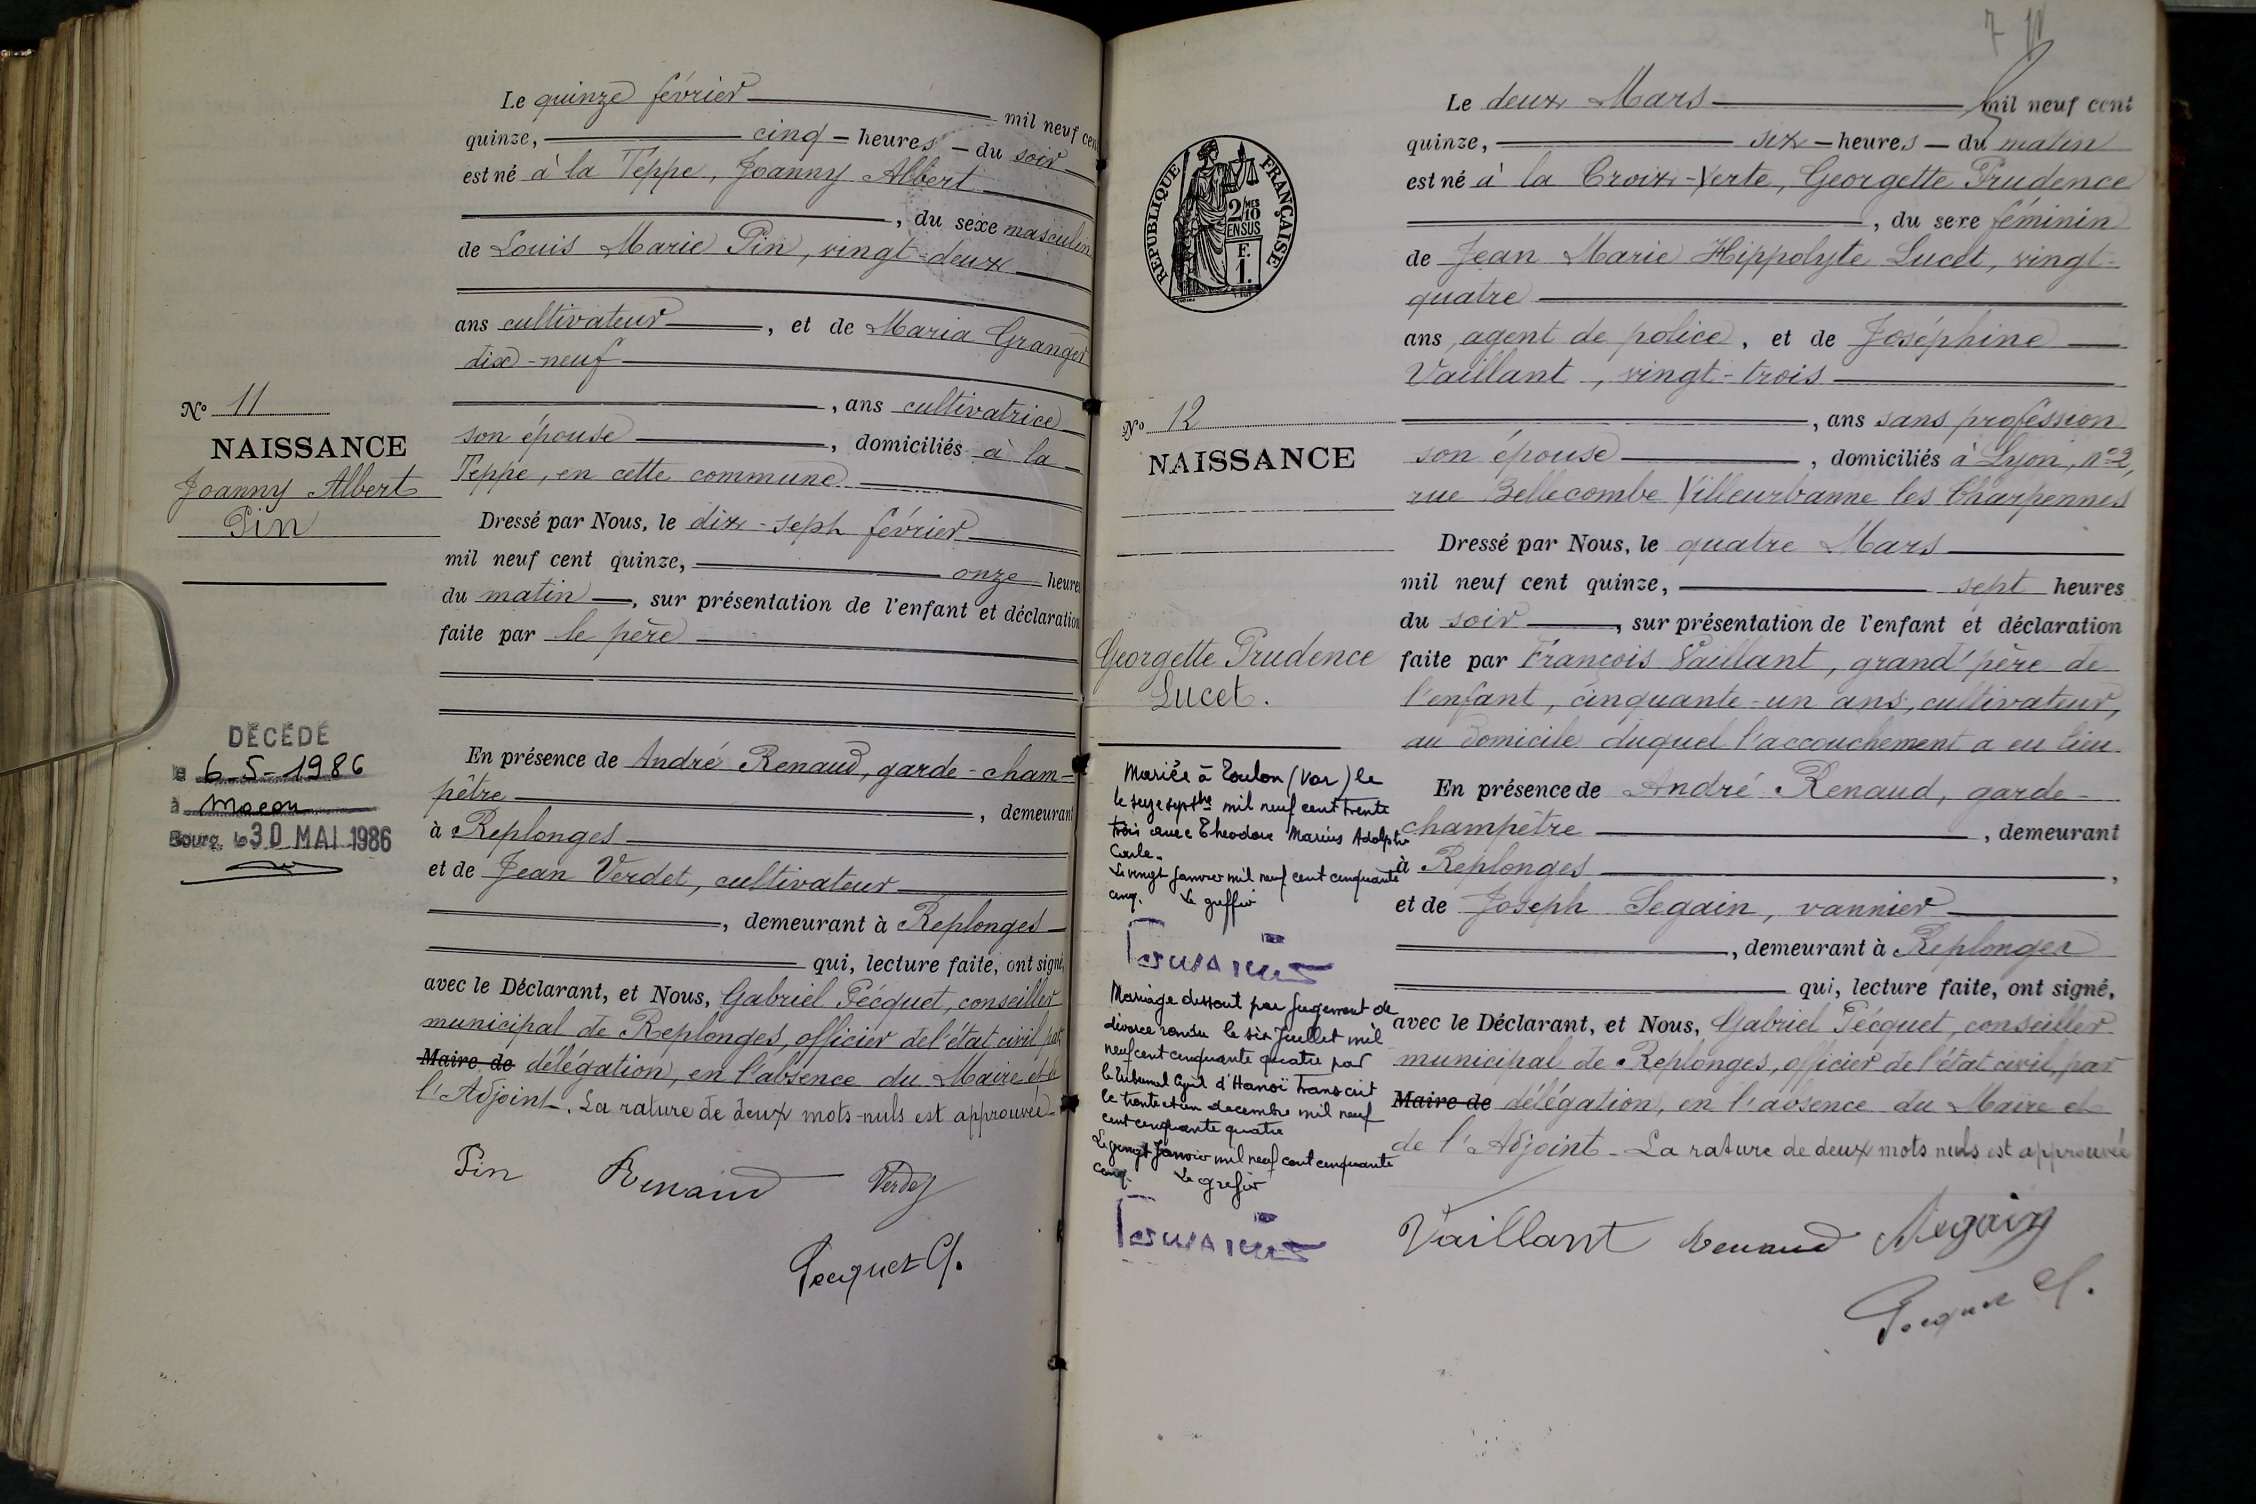 Le quinze février mil neuf cent
quinze, cinq heures du soir
est né à la Teppe, Joanny Albert
, du sexe masculin
de Louis Marie Pin, vingt-deux
ans cultivateur, et de Maria Granger
dix-neuf
, ans cultivatrice
son épouse, domiciliés à la
Teppe, en cette commune
Dressé par Nous, le dix-sept février
mil neuf cent quinze, onze heures
du matin, sur présentation de l'enfant et déclaration
faite par le père
En présence de André Renaud, garde-cham-
pêtre, demeurant
à Replonges
et de Jean Verdet, cultivateur
, demeurant à Replonges
qui, lecture faite, ont signé,
avec le Déclarant, et Nous, Gabriel Pécquet, conseiller
municipal de Replonges, officier de l'état civil par
Maire de délégation, en l'absence du Maire et de
l'Adjoint. La rature de deux mots nuls est approuvée
Pin Renaud Verdet
Pecquet G.
No 11
NAISSANCE
Joanny Albert
Pin
DÉCÉDÉ
le 6-5-1986
à Macon
Bourg, le 30 MAI 1986
7
RÉPUBLIQUE FRANÇAISE
2/10 MES
EN SUS
F.
1.
Le deux Mars mil neuf cent
quinze, six heures du matin
est né à la Croix-Verte, Georgette Prudence
, du sexe féminin
de Jean Marie Hippolyte Lucet, vingt-
quatre
ans, agent de police, et de Joséphine
Vaillant, vingt-trois
, ans sans profession
son épouse, domiciliés à Lyon, n° 2,
rue Bellecombe Villeurbanne les Charpennes
Dressé par Nous, le quatre Mars
mil neuf cent quinze, sept heures
du soir, sur présentation de l'enfant et déclaration
faite par François Vaillant, grand'père de
l'enfant, cinquante-un ans, cultivateur,
au domicile duquel l'accouchement a eu lieu
En présence de André Renaud, garde-
champêtre, demeurant
à Replonges,
et de Joseph Segain, vannier
, demeurant à Replonges
qui, lecture faite, ont signé,
avec le Déclarant, et Nous, Gabriel Pécquet, conseiller
municipal de Replonges, officier de l'état civil, par
Maire de délégation, en l'absence du Maire et
de l'Adjoint - La rature de deux mots nuls est approuvée
Vaillant Renaud Segain
Pecquet G.
No 12
NAISSANCE
Georgette Prudence
Lucet.
Mariée à Toulon (Var) le
le seize septbre mil neuf cent trente
trois avec Theodore Marius Adolphe
Carle.
Le vingt Janvier mil neuf cent cinquante
cinq. Le greffier
Mariage dissout par Jugement de
divorce rendu le six Juillet mil
neuf cent cinquante quatre par
le Tribunal Civil d'Hanoï transcrit
le trente et un decembre mil neuf
cent cinquante quatre
Le vingt Janvier mil neuf cent cinquante
cinq. Le greffier